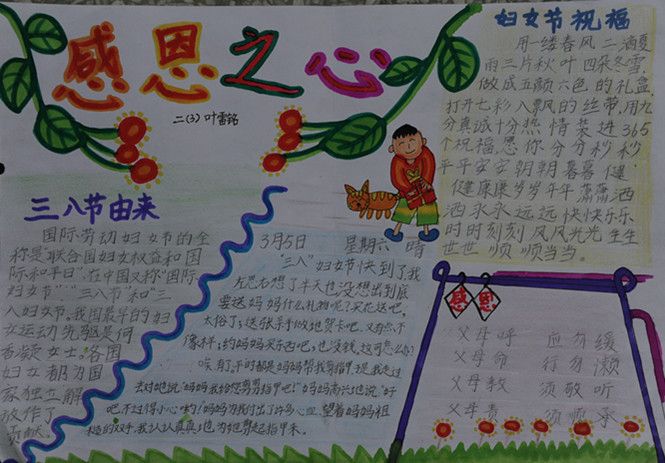 感恩之心
二(3) 叶雷铭
妇女节祝福
用一缕春风二滴夏
雨三片秋叶四朵冬雪,
做成五颜六色的礼盒,
打开七彩八飘风的丝带,用九
分真诚十分热情装进365
个祝福,愿你分分秒秒
平平安安朝朝暮暮健
健康康岁岁年年潇潇洒
洒永永远远快快乐乐
时时刻刻风风光光生生
世世顺顺当当。
三八节由来
国际劳动妇女节的全
称是联合国妇女权益和国
际和平日”在中国又称“国际
妇女节”“三八节”和“三
八妇女节。我国最早的妇
女运动先驱是何
香凝女士。各国
妇女都为国
家独立解
放作了
贡献。
3月5日 星期六 晴
“三八”妇女节快到了我
左思右想了半天也没想出到底
要送妈妈什么礼物呢?买花送吧,
太俗了;送张亲手做地贺卡吧,又有点不
像样;约妈妈买东西吧,也没钱,这可怎么办?
唉,有了,平时都是妈妈帮我剪指甲,现我走过
去对她说:“妈妈我给您剪剪指甲吧!”妈妈高兴地说:“好
吧,不过得小心哟!”妈妈为我付出了许多心血,望着妈妈粗
糙的双手,我认认真真地为她剪起指甲来。
感恩
父母呼 应勿缓
父母命 行勿懒
父母教 须敬听
父母责 须顺承